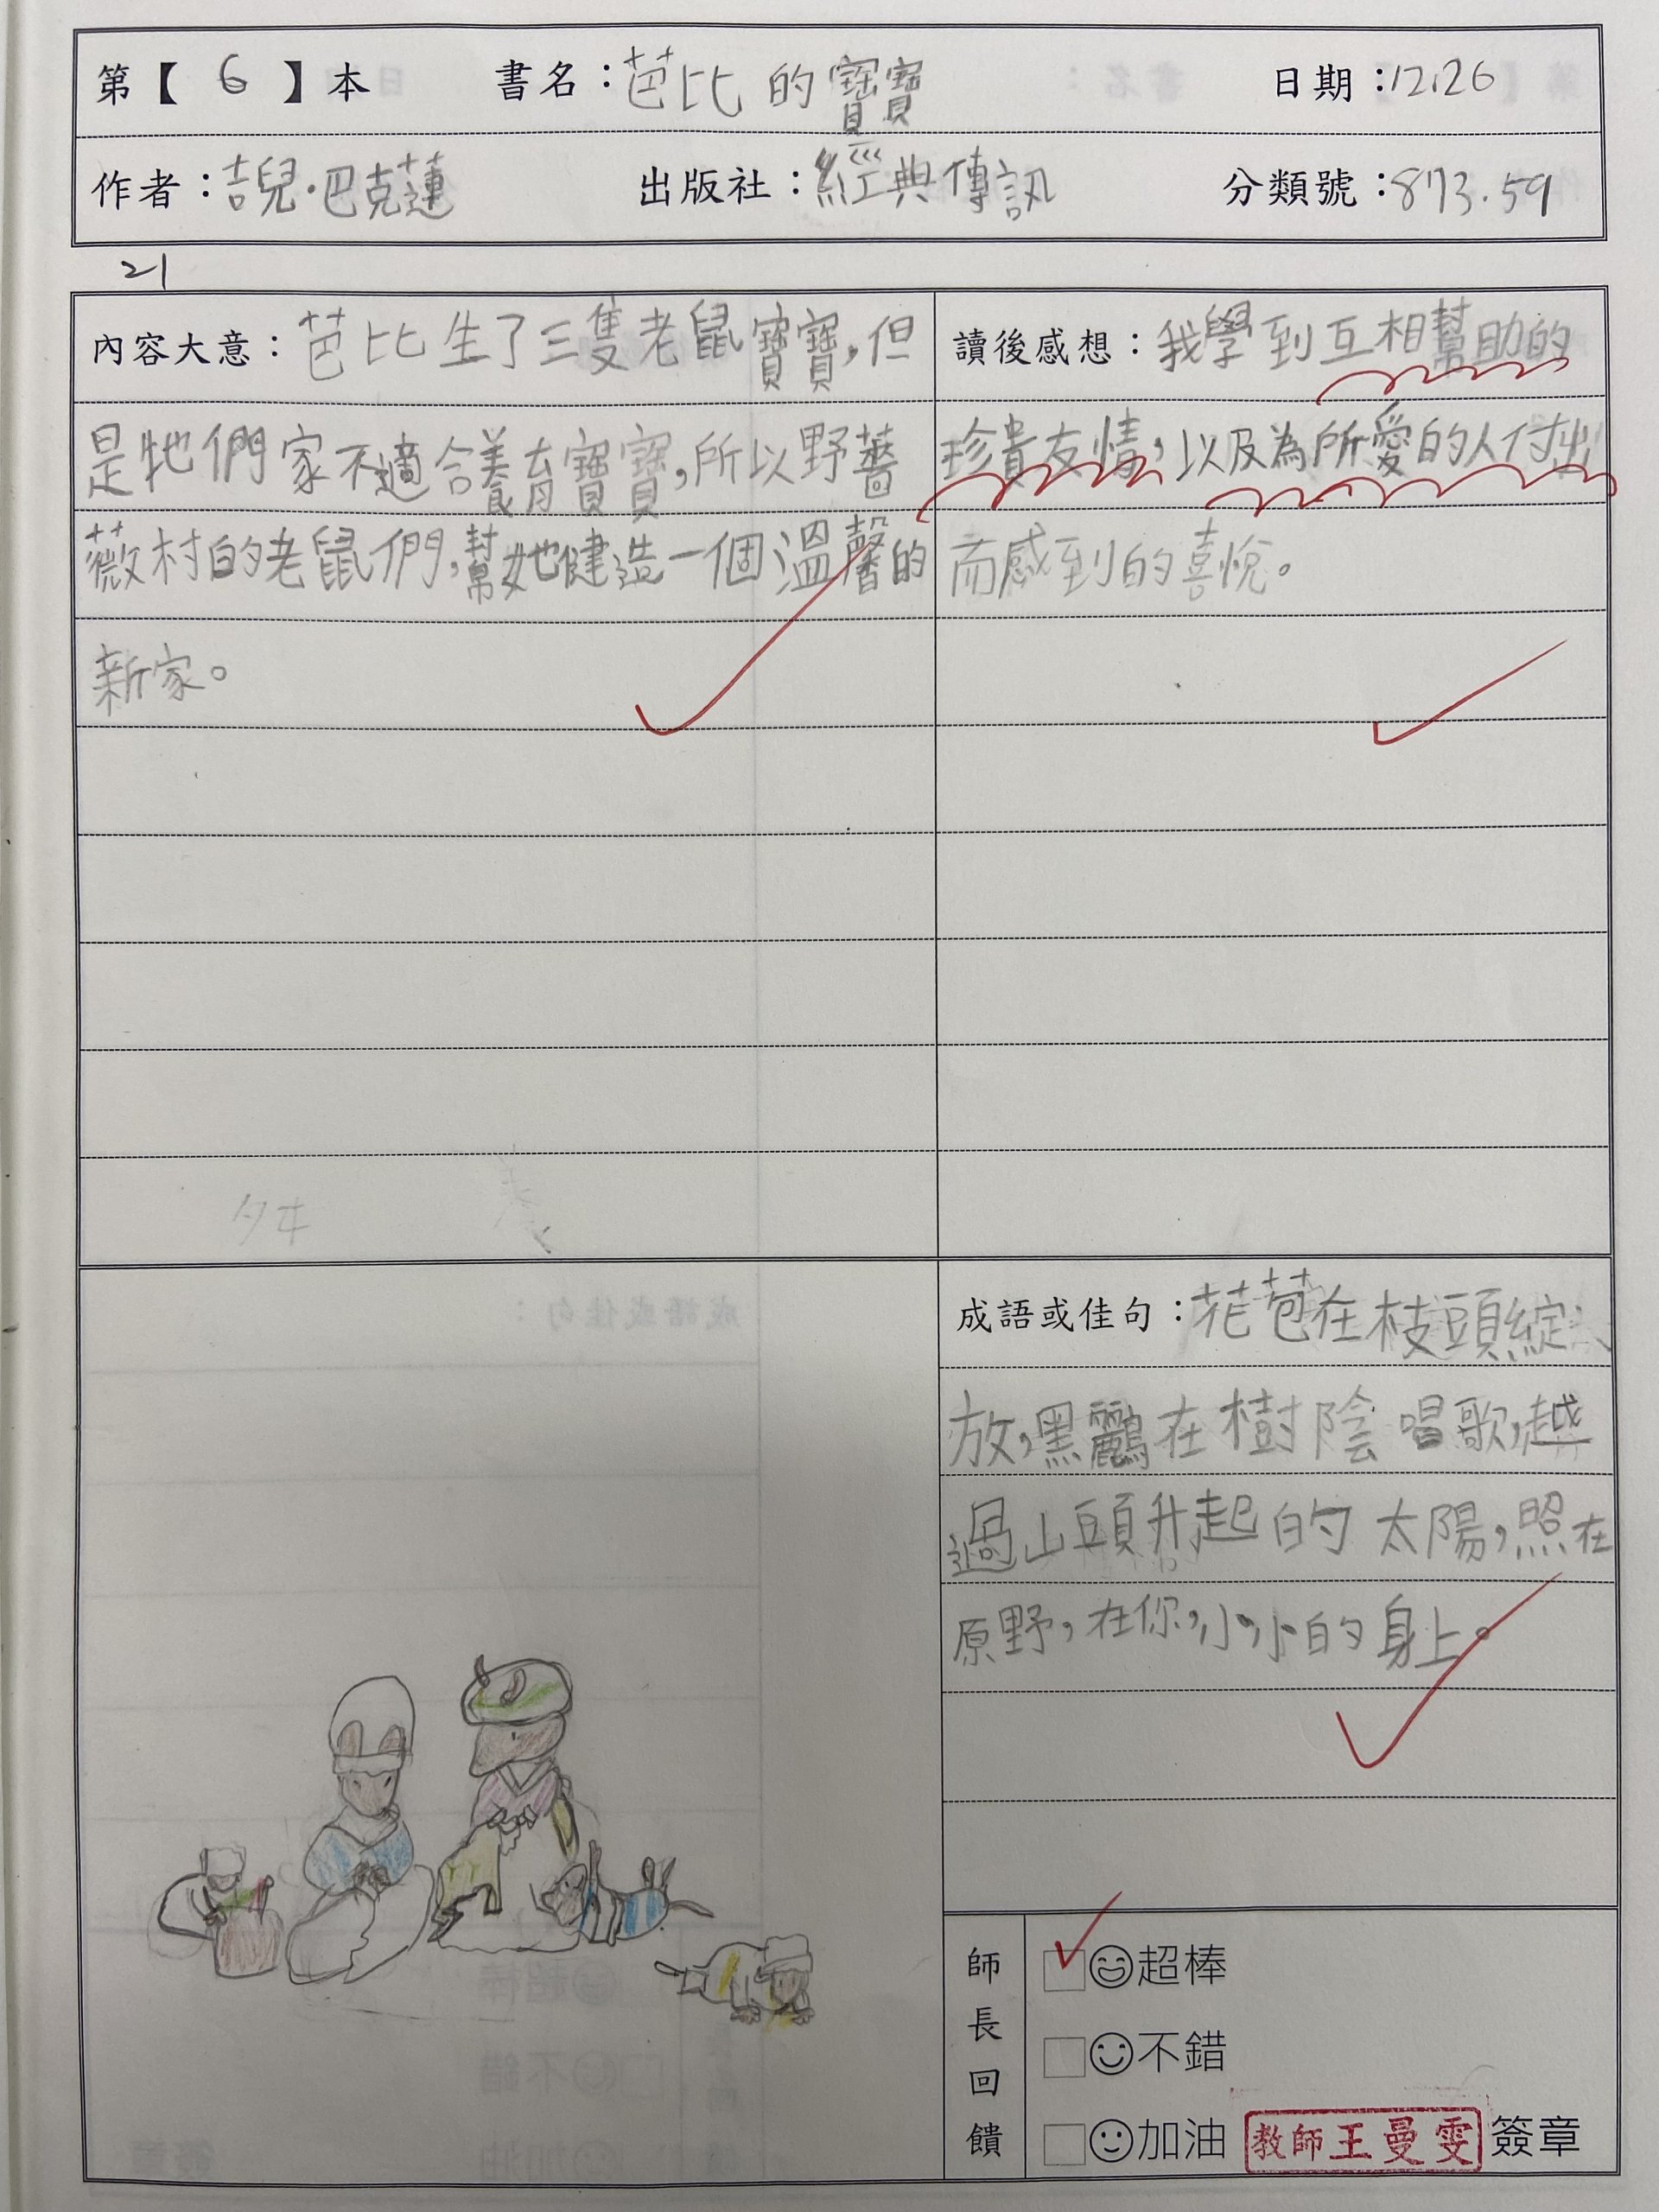 第【 6 】本 書名：芭比的寶寶 日期：12.26
作者：吉兒·巴克蓮 出版社：經典傳訊 分類號：873.59
21
內容大意：芭比生了三隻老鼠寶寶，但
是牠們家不適合養育寶寶，所以野薔
薇村的老鼠們，幫她健造一個溫馨的
新家。
讀後感想：我學到互相幫助的
珍貴友情，以及為所愛的人付出
而感到的喜悅。
成語或佳句：花苞在枝頭綻
放，黑鸝在樹陰唱歌，越
過山頭升起的太陽，照在
原野，在你，小小的身上。
師長回饋
超棒
不錯
加油 教師王曼雯 簽章